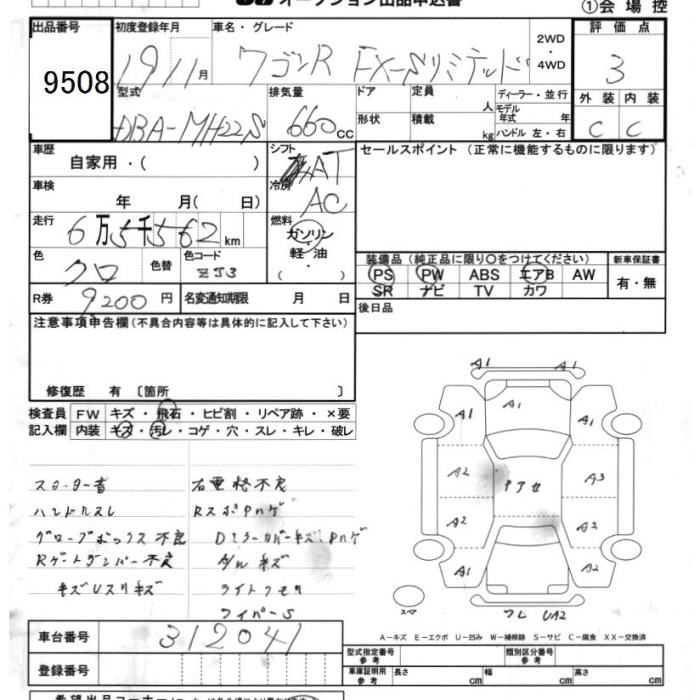 オークション出品申込書
①会場控
出品番号 初度登録年月 車名・グレード 2WD・4WD 評価点
9508 19 11月 ワゴンR FX-Sリミテッド 3
型式 排気量 ドア 定員 人 ディーラー・並行 外装 内装
DBA-MH22S 660cc 形状 積載 kg モデル年式 年 ハンドル 左・右 C C
車歴 シフト セールスポイント(正常に機能するものに限ります)
自家用・( ) AT
車検 冷房
年 月( 日) AC
走行 燃料
6万5千562km ガソリン・軽油・( )
色 色替 色コード 装備品(純正品に限り○をつけてください) 新車保証書
クロ ZJ3 PS PW ABS エアB AW 有・無
SR ナビ TV カワ
R券 9,200円 名変通知期限 月 日 後日品
注意事項申告欄(不具合内容等は具体的に記入して下さい)
修復歴 有〔箇所 〕
検査員 FW キズ・飛石・ヒビ割・リペア跡・×要
記入欄 内装 キズ・汚レ・コゲ・穴・スレ・キレ・破レ
スターター音 右電格不良
ハンドルスレ RスポPハゲ
グローブボックス不良 Dミラーカバーキズ、Pハゲ
Rゲートダンパー不良 A/Wキズ
キズUスリキズ ライトクモリ
ワイパーS
A1 A1
A1 A1 A1
A2 Pアセ A3
A2 A2
A1 A2
スマ フレ UA2
A-キズ E-エクボ U-凹み W-補修跡 S-サビ C-腐食 XX-交換済
車台番号 312041
登録番号
型式指定番号 参考 類別区分番号 参考
車庫証明用 参考 長さ cm 幅 cm 高さ cm
希望出品コーナー